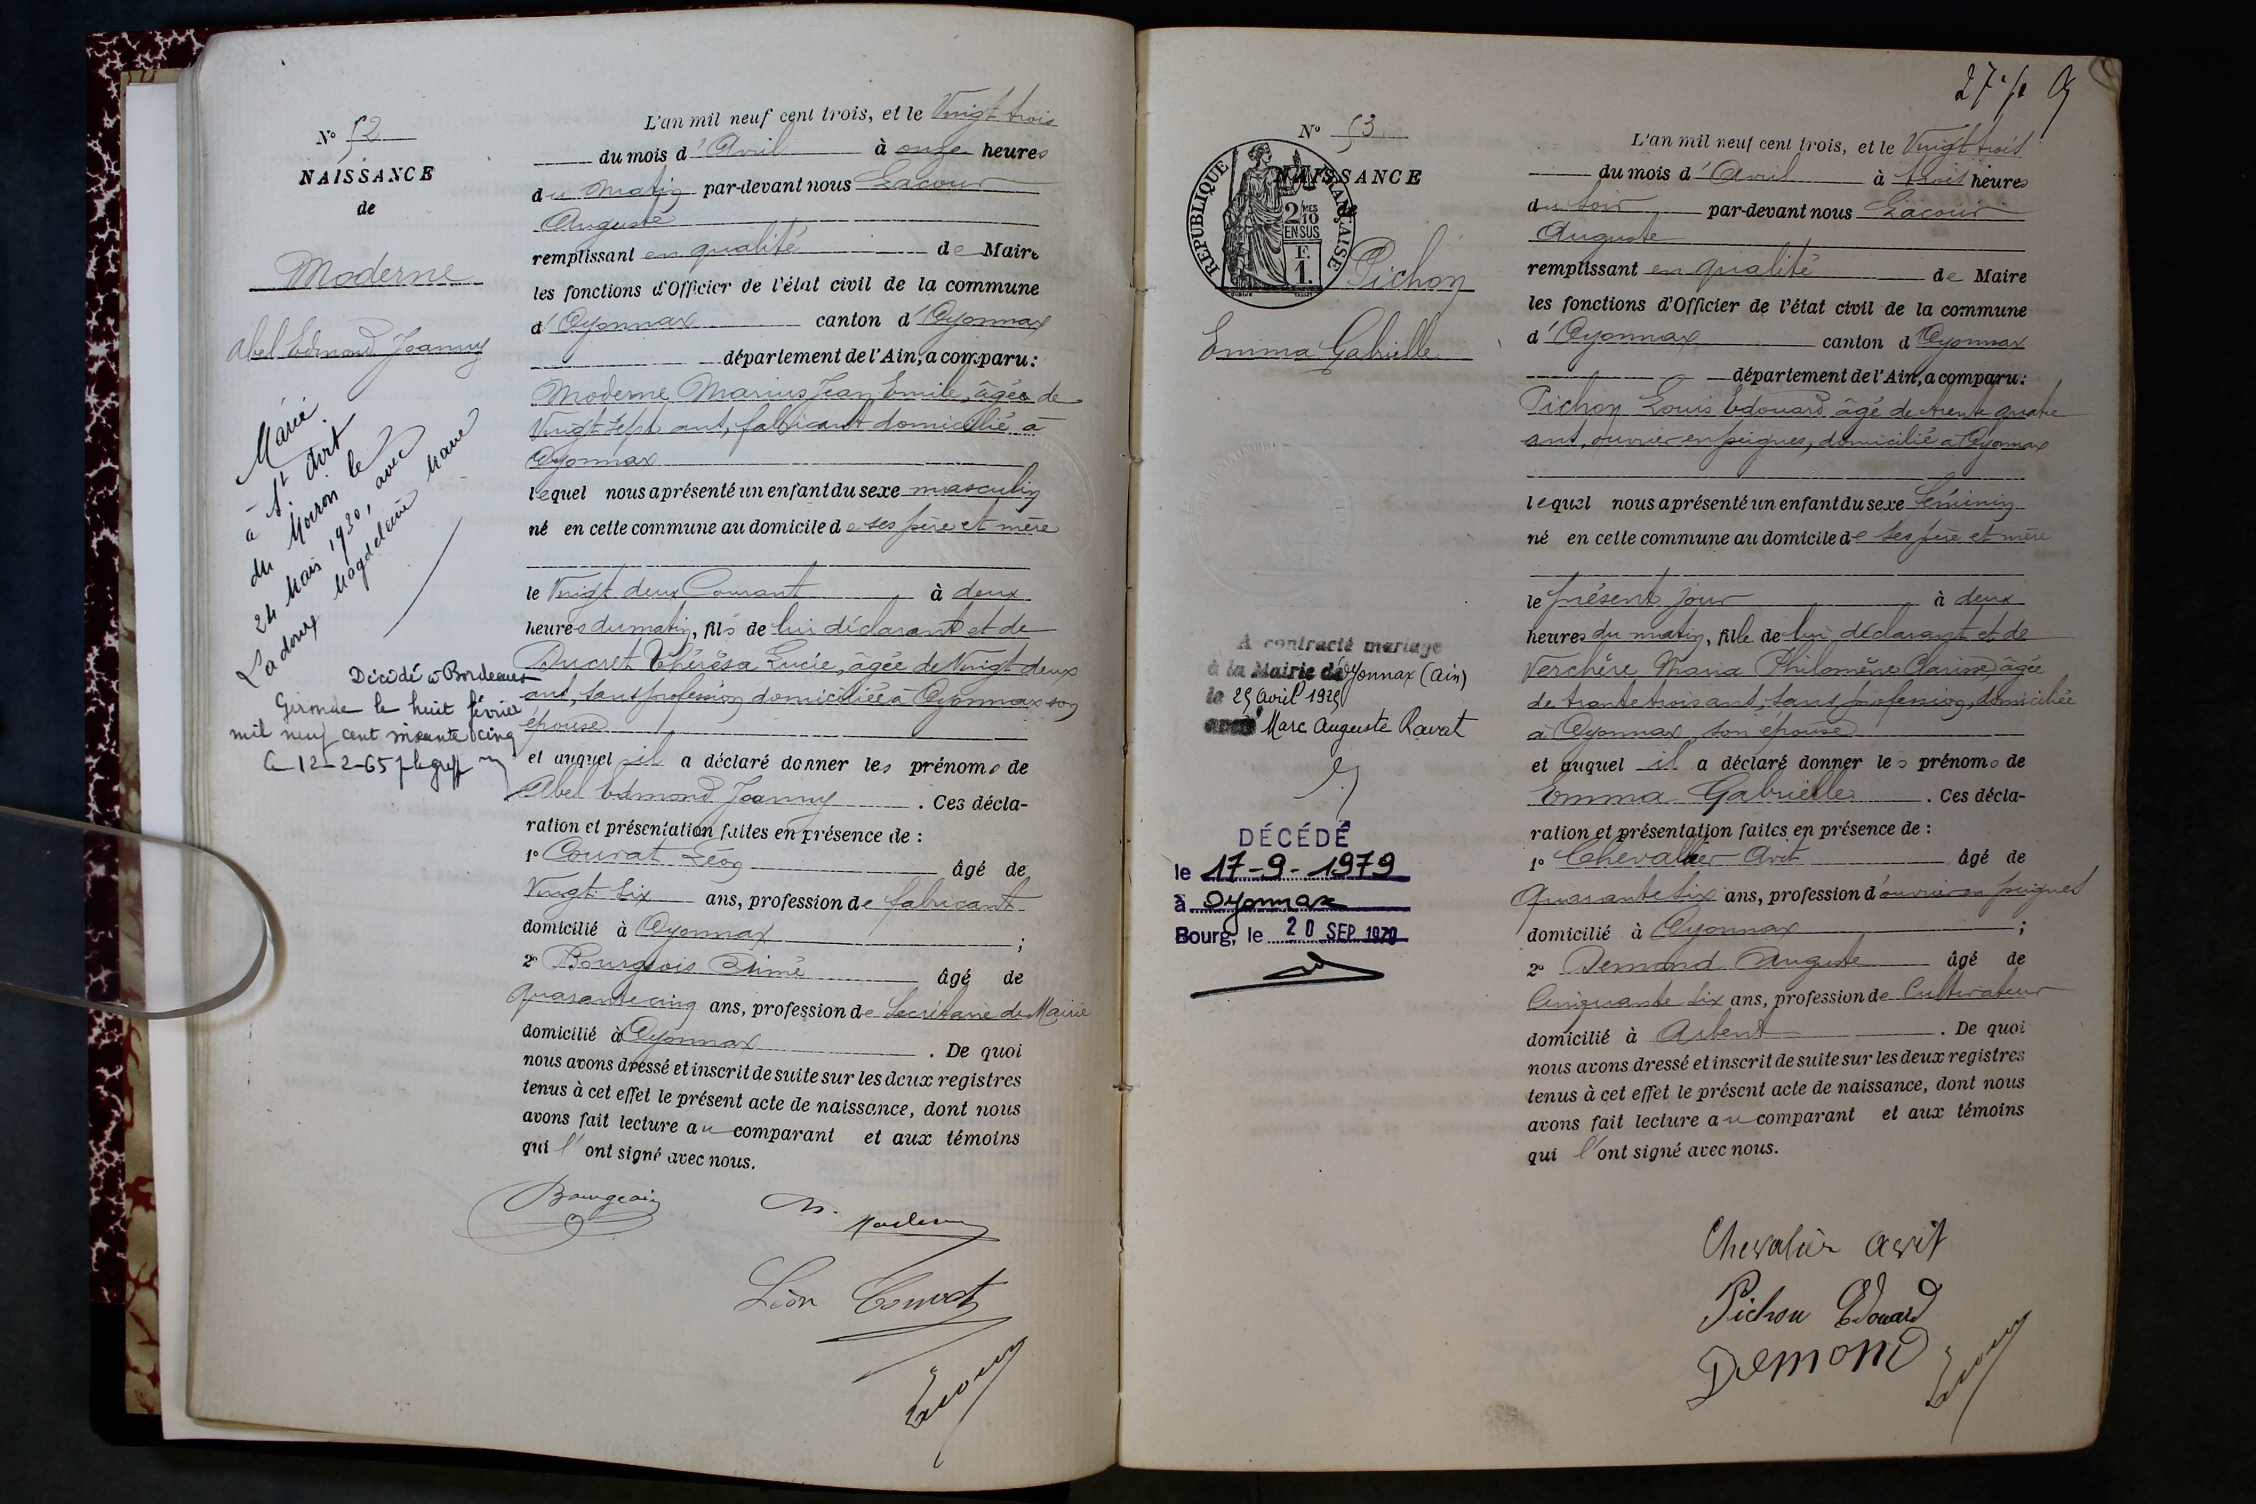 N° 52
NAISSANCE
de
Moderne
Abel Edmond Joanny
Marié
à St Avit
du Moiron le
24 Mars 1930, avec
Ladoux Magdeleine Marie
Décédé à Bordeaux
Gironde le huit février
mil neuf cent soixante cinq
Le 12-2-65 le greff
L'an mil neuf cent trois, et le Vingt trois
du mois d'Avril à onze heures
du matin par-devant nous Lacour
Auguste
remplissant en qualité de Maire
les fonctions d'Officier de l'état civil de la commune
d'Oyonnax canton d'Oyonnax
département de l'Ain, a comparu:
Moderne Marius Jean Emile, âgée de
Vingt sept ans, fabricant domicilié à
Oyonnax
lequel nous a présenté un enfant du sexe masculin
né en cette commune au domicile de ses père et mère
le Vingt deux Courant à deux
heures du matin, fils de lui déclarant et de
Ducret Thérèsa Lucie, âgée de Vingt deux
ans, sans profession domiciliée à Oyonnax son
épouse
et auquel il a déclaré donner les prénoms de
Abel Edmond Joanny . Ces décla-
ration et présentation faites en présence de :
1° Couvat Léon âgé de
Vingt six ans, profession de fabricant
domicilié à Oyonnax ;
2° Bourgeois Aimé âgé de
quarante cinq ans, profession de Secrétaire de Mairie
domicilié à Oyonnax . De quoi
nous avons dressé et inscrit de suite sur les deux registres
tenus à cet effet le présent acte de naissance, dont nous
avons fait lecture au comparant et aux témoins
qui l'ont signé avec nous.
Bourgeois
M. Moderne
Léon Couvat
Lacour
27e fe
N° 53
NAISSANCE
de
REPUBLIQUE FRANÇAISE
2/10MES
EN SUS
1 F.
Pichon
Emma Gabrielle
A contracté mariage
à la Mairie de Oyonnax (Ain)
le 25 avril 1925
avec Marc Auguste Ravat
DÉCÉDÉ
le 17-9-1979
à Oyonnax
Bourg, le 20 SEP. 1979
L'an mil neuf cent trois, et le Vingt trois
du mois d'Avril à trois heures
du soir par-devant nous Lacour
Auguste
remplissant en qualité de Maire
les fonctions d'Officier de l'état civil de la commune
d'Oyonnax canton d'Oyonnax
département de l'Ain, a comparu:
Pichon Louis Edouard âgé de trente quatre
ans, ouvrier en peignes, domicilié à Oyonnax
lequel nous a présenté un enfant du sexe féminin
né en cette commune au domicile de ses père et mère
le présent jour à deux
heures du matin, fille de lui déclarant et de
Verchère Maria Philomène Clarisse âgée
de trente trois ans, sans profession, domiciliée
à Oyonnax, son épouse
et auquel il a déclaré donner les prénoms de
Emma Gabrielle . Ces décla-
ration et présentation faites en présence de :
1° Chevalier Avit âgé de
quarante six ans, profession d'ouvrier en peignes
domicilié à Oyonnax ;
2° Demond Auguste âgé de
Cinquante six ans, profession de Cultivateur
domicilié à Arbent . De quoi
nous avons dressé et inscrit de suite sur les deux registres
tenus à cet effet le présent acte de naissance, dont nous
avons fait lecture au comparant et aux témoins
qui l'ont signé avec nous.
Chevalier avit
Pichon Edouard
Demond
Lacour